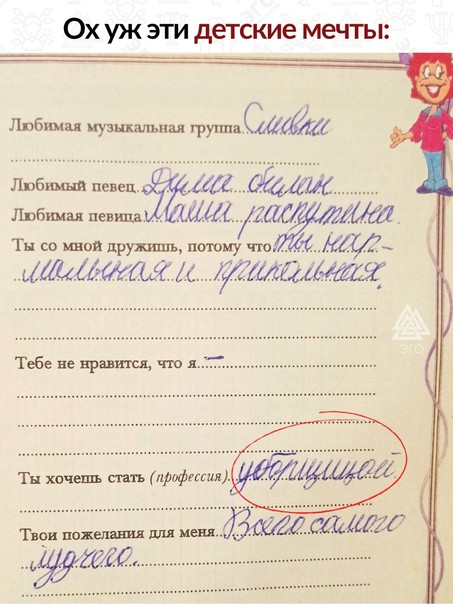 Ох уж эти детские мечты:
Любимая музыкальная группа Сливки
Любимый певец Дима билан
Любимая певица Маша распутина
Ты со мной дружишь, потому что ты нар-
мальная и прикольная.
Тебе не нравится, что я –
Ты хочешь стать (профессия) убфрищицей
Твои пожелания для меня Всего самого
лудчего.
эго